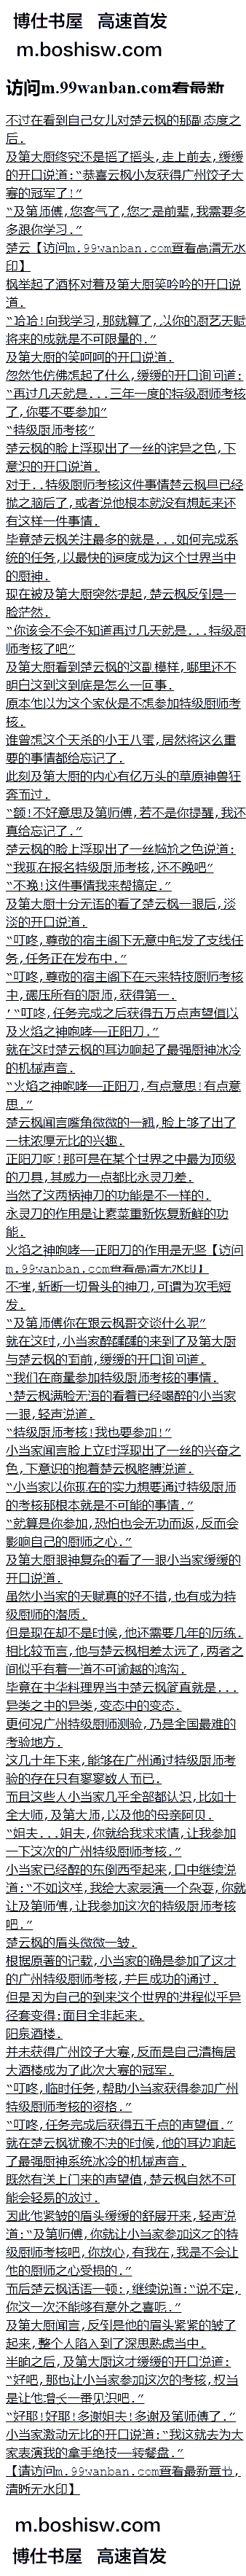 博仕书屋 高速首发
m.boshisw.com
访问m.99wanban.com看最新
不过在看到自己女儿对楚云枫的那副态度之
后.
及第大厨终究还是摇了摇头,走上前去,缓缓
的开口说道:“恭喜云枫小友获得广州饺子大
赛的冠军了!”
“及第师傅,您客气了,您才是前辈,我需要多
多跟你学习.”
楚云【访问m.99wanban.com查看高清无水
印】
枫举起了酒杯对着及第大厨笑吟吟的开口说
道.
“哈哈!向我学习,那就算了,以你的厨艺天赋
将来的成就是不可限量的.”
及第大厨的笑呵呵的开口说道.
忽然他仿佛想起了什么,缓缓的开口询问道:
“再过几天就是...三年一度的特级厨师考核
了,你要不要参加”
“特级厨师考核”
楚云枫的脸上浮现出了一丝的诧异之色,下
意识的开口说道.
对于..特级厨师考核这件事情楚云枫早已经
抛之脑后了,或者说他根本就没有想起来还
有这样一件事情.
毕竟楚云枫关注最多的就是...如何完成系
统的任务,以最快的速度成为这个世界当中
的厨神.
现在被及第大厨突然提起,楚云枫反到是一
脸茫然.
“你该会不会不知道再过几天就是...特级厨
师考核了吧”
及第大厨看到楚云枫的这副模样,哪里还不
明白这到这到底是怎么一回事.
原本他以为这个家伙是不想参加特级厨师考
核.
谁曾想这个天杀的小王八蛋,居然将这么重
要的事情都给忘记了.
此刻及第大厨的内心有亿万头的草原神兽狂
奔而过.
“额!不好意思及第师傅,若不是你提醒,我还
真给忘记了.”
楚云枫的脸上浮现出了一丝尴尬之色说道:
“我现在报名特级厨师考核,还不晚吧”
“不晚!这件事情我来帮搞定.”
及第大厨十分无语的看了楚云枫一眼后,淡
淡的开口说道.
“叮咚,尊敬的宿主阁下无意中触发了支线任
务,任务正在发布中.”
“叮咚,尊敬的宿主阁下在未来特技厨师考核
中,碾压所有的厨师,获得第一.
‘“叮咚,任务完成之后获得五万点声望值以
及火焰之神咆哮——正阳刀.”
就在这时楚云枫的耳边响起了最强厨神冰冷
的机械声音.
“火焰之神咆哮——正阳刀,有点意思!有点意
思.”
楚云枫闻言嘴角微微的一翘,脸上够了出了
一抹浓厚无比的兴趣.
正阳刀啊!那可是在某个世界之中最为顶级
的刀具,其威力一点都比永灵刀差.
当然了这两柄神刀的功能是不一样的.
永灵刀的作用是让素菜重新恢复新鲜的功
能.
火焰之神咆哮——正阳刀的作用是无坚【访问
m.99wanban.com查看高清无水印】
不摧,斩断一切骨头的神刀,可谓为吹毛短
发.
“及第师傅你在跟云枫哥交谈什么呢”
就在这时,小当家醉醺醺的来到了及第大厨
与楚云枫的面前,缓缓的开口询问道.
“我们在商量参加特级厨师考核的事情.
‘楚云枫满脸无语的看着已经喝醉的小当家
一眼,轻声说道.
“特级厨师考核!我也要参加!”
小当家闻言脸上立时浮现出了一丝的兴奋之
色,下意识的抱着楚云枫胳膊说道.
“小当家以你现在的实力想要通过特级厨师
的考核那根本就是不可能的事情.”
“就算是你参加,恐怕也会无功而返,反而会
影响自己的厨师之心.”
及第大厨眼神复杂的看了一眼小当家缓缓的
开口说道.
虽然小当家的天赋真的好不错,也有成为特
级厨师的潜质.
但是现在却不是时候,他还需要几年的历练.
相比较而言,他与楚云枫相差太远了,两者之
间似乎有着一道不可逾越的鸿沟.
毕竟在中华料理界当中楚云枫简直就是...
异类之中的异类,变态中的变态.
更何况广州特级厨师测验,乃是全国最难的
考验地方.
这几十年下来,能够在广州通过特级厨师考
验的存在只有寥寥数人而已.
而且这些人小当家几乎全部都认识,比如十
全大师,及第大师,以及他的母亲阿贝.
“姐夫...姐夫,你就给我求求情,让我参加
一下这次的广州特级厨师考核.”
小当家已经醉的东倒西歪起来,口中继续说
道:“不如这样,我给大家表演一个杂耍,你就
让及第师傅,让我参加这次的特级厨师考核
吧.”
楚云枫的眉头微微一皱.
根据原著的记载,小当家的确是参加了这才
的广州特级厨师考核,并且成功的通过.
但是因为自己的到来这个世界的进程似乎异
径套变得:面目全非起来.
阳泉酒楼.
并未获得广州饺子大赛,反而是自己清梅居
大酒楼成为了此次大赛的冠军.
“叮咚,临时任务,帮助小当家获得参加广州
特级厨师考核的资格.”
“叮咚,任务完成后获得五千点的声望值.”
就在楚云枫犹豫不决的时候,他的耳边响起
了最强厨神系统冰冷的机械声音.
既然有送上门来的声望值,楚云枫自然不可
能会轻易的放过.
因此他紧皱的眉头缓缓的舒展开来,轻声说
道:“及第师傅,你就让小当家参加这才的特
级厨师考核吧,你放心,有我在,我是不会让
他的厨师之心受损的.”
而后楚云枫话语一顿:,继续说道:“说不定,
你这一次还能够有意外之喜呢.”
及第大厨闻言,反到是他的眉头紧紧的皱了
起来,整个人陷入到了深思熟虑当中.
半晌之后,及第大厨这才缓缓的开口说道:
“好吧,那也让小当家参加这次的考核,权当
是让他增长一番见识吧.”
“好耶!好耶!多谢姐夫!多谢及第师傅了.”
小当家激动无比的开口说道:“我这就去为大
家表演我的拿手绝技——转餐盘.”
【请访问m.99wanban.com查看最新章节,
清晰无水印】
m.boshisw.com
博仕书屋 高速首发